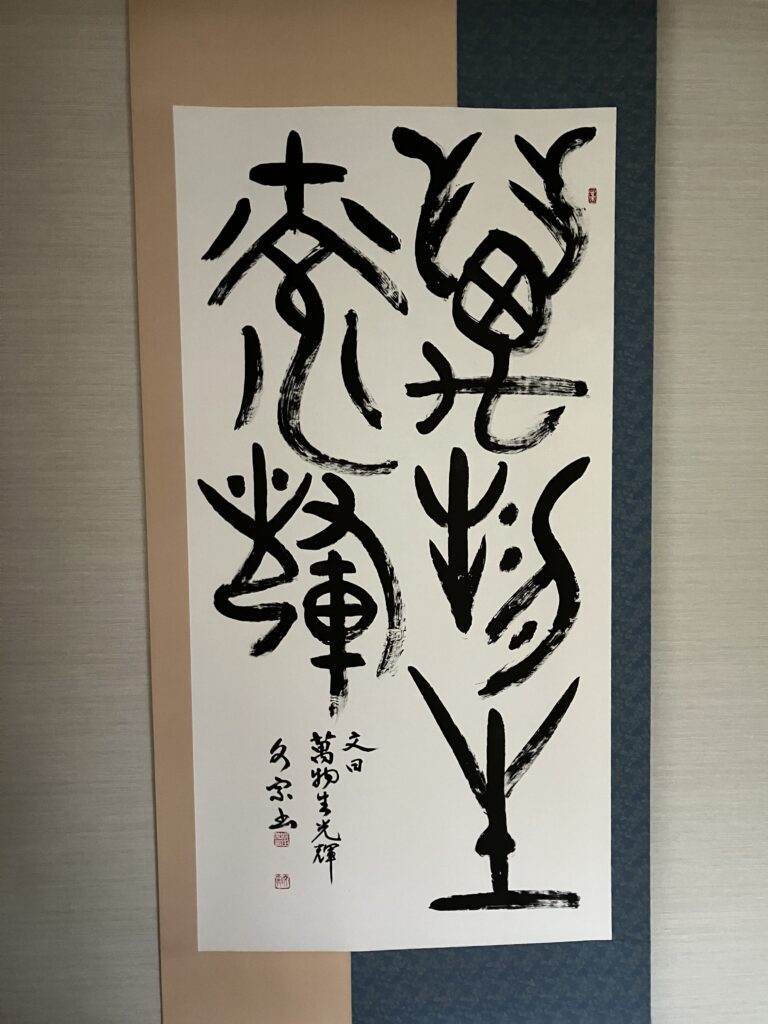 萬物生
光輝
文曰
萬物生光輝
文宗书